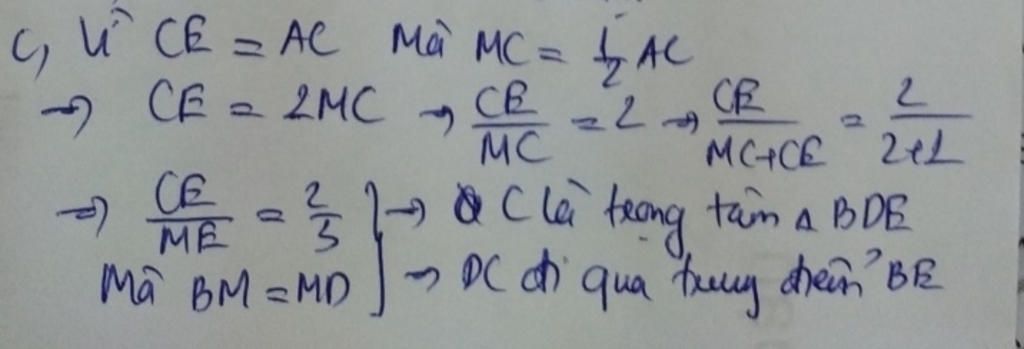 c, Vì CE = AC Mà MC = 1/2 AC
→ CE = 2MC → CE/MC = 2 → CE/MC+CE = 2/2+1
→ CE/ME = 2/3 } → C là trọng tâm △ BDE
Mà BM = MD } → DC đi qua trung điểm BE